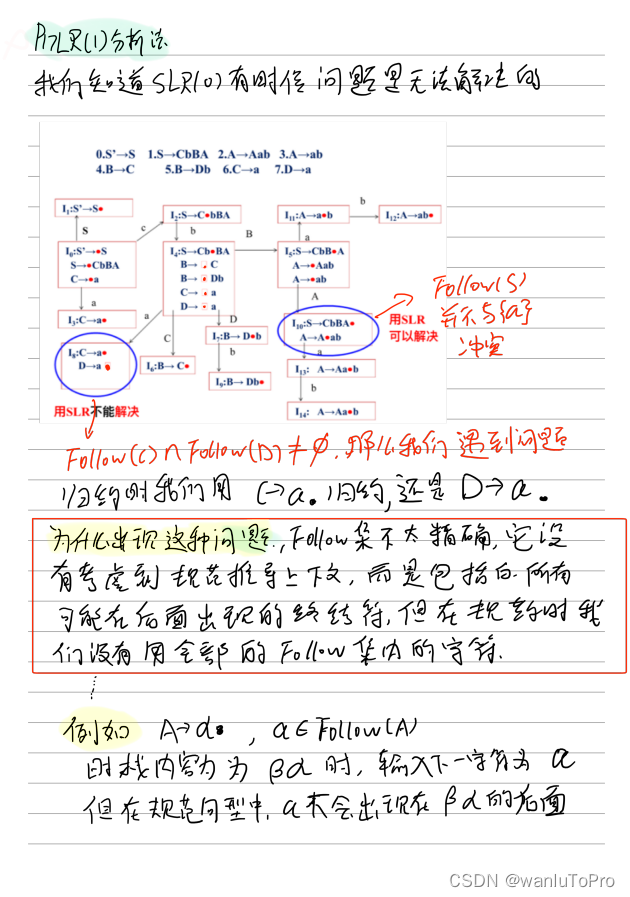 LR(1)分析法
我们知道SLR(0)有时候问题是无法解决的
0.S'→S 1.S→CbBA 2.A→Aab 3.A→ab
4.B→C 5.B→Db 6.C→a 7.D→a
I₁:S'→S•
I₂:S→C•bBA
I₁₁:A→a•b
b
I₁₂:A→ab•
S
c
b
B
a
I₀:S'→•S
S→•CbBA
C→•a
I₄:S→Cb•BA
B→ . C
B→ • Db
C→ • a
D→ • a
I₅:S→CbB•A
A→•Aab
A→•ab
a
A
Follow(S)
并不与{a}
冲突
I₃:C→a•
a
C
D
I₇:B→ D•b
I₁₀:S→CbBA•
A→A•ab
用SLR
可以解决
I₈:C→a•
D→a •
I₆:B→ C•
b
I₉:B→ Db•
a
I₁₃: A→Aa•b
b
I₁₄: A→Aa•b
用SLR不能解决
Follow(C)∩Follow(D)≠∅.那么我们遇到问题
归约时我们用 C→a.归约,还是 D→a.
为什么出现这种问题,Follow集不太精确,它没
有考虑到规范推导上下文,而是包括向所有
可能在后面出现的终结符,但在规约时我
们没有用全部的Follow集内的字符.
例如 A→α• , a∈Follow(A)
时栈内容为为 βα 时,输入下一字符为 a
但在规范句型中,a不会出现在βα的后面
CSDN @wanluToPro